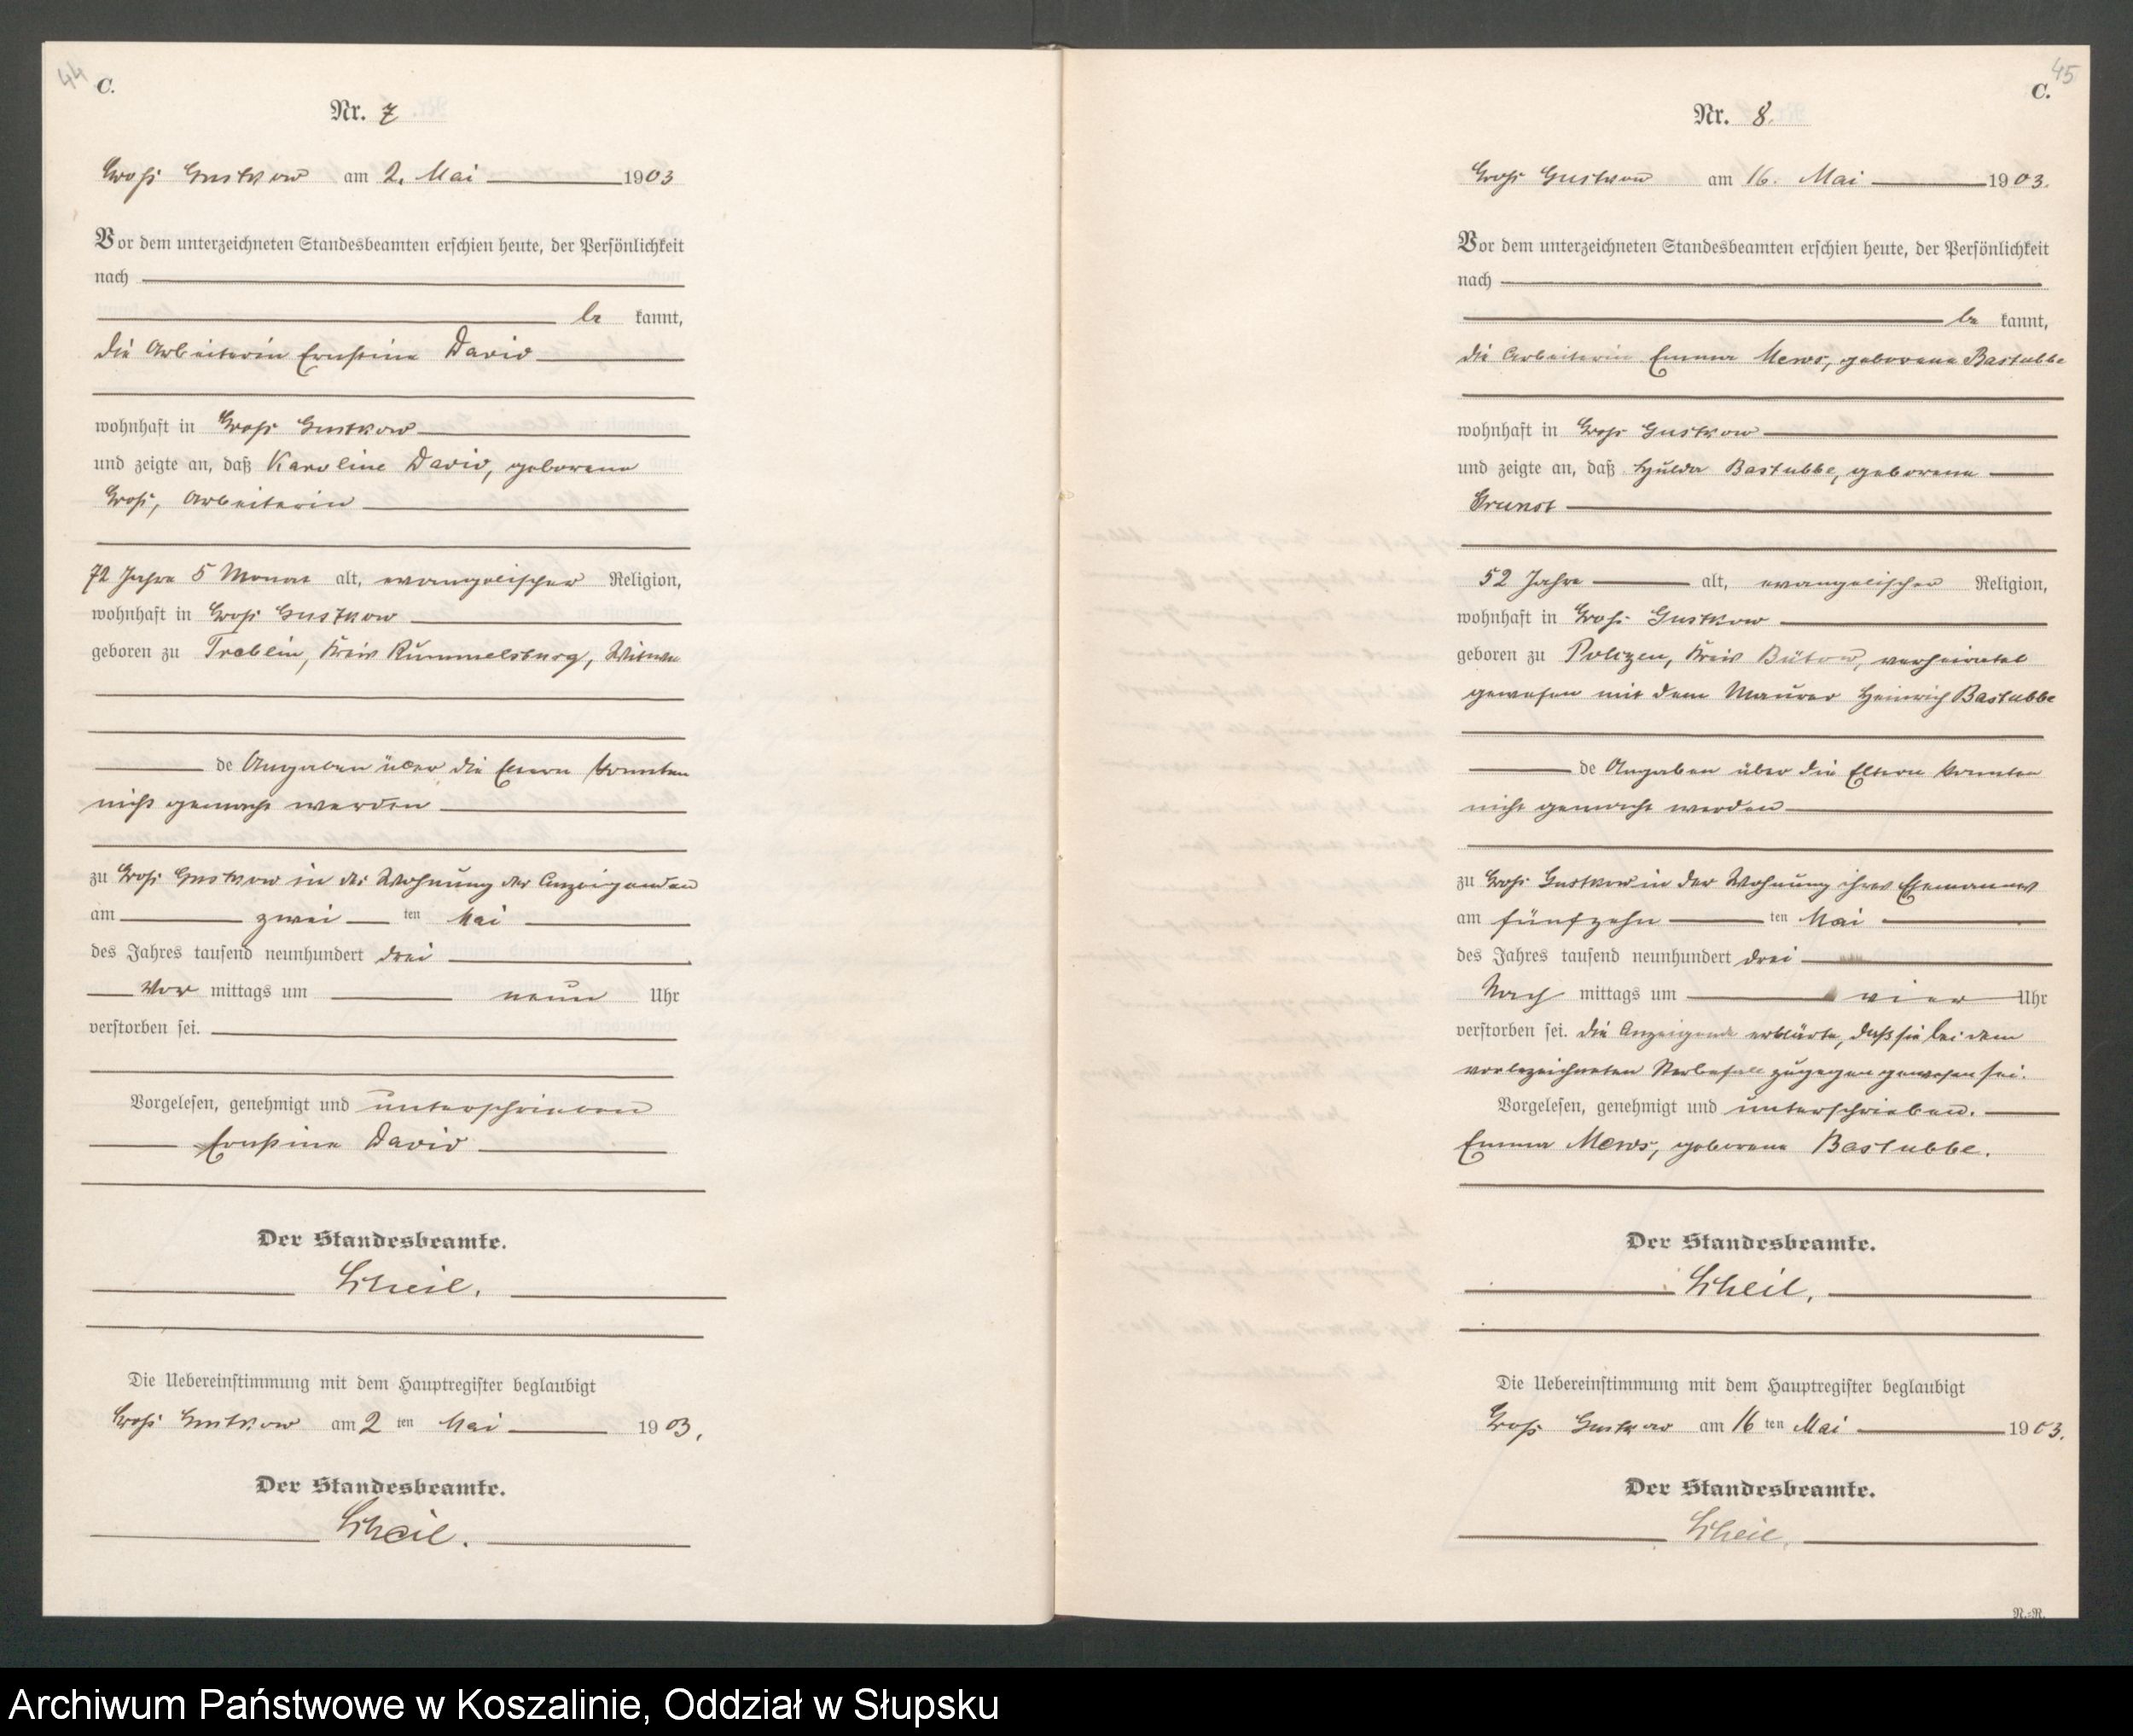 44
C.
Nr. 7
Groß Gustkow am 2. Mai 1903
Vor dem unterzeichneten Standesbeamten erschien heute, der Persönlichkeit
nach
be kannt,
die Arbeiterin Ernstine David
wohnhaft in Groß Gustkow
und zeigte an, daß Karoline David, geborene
Groß, Arbeiterin
72 Jahre 5 Monat alt, evangelischer Religion,
wohnhaft in Groß Gustkow
geboren zu Treblin, Kreis Rummelsburg, Witwe
de Angaben über die Eltern konnten
nicht gemacht werden
zu Groß Gustkow in der Wohnung der Anzeigenden
am zwei ten Mai
des Jahres tausend neunhundert drei
Vor mittags um neun Uhr
verstorben sei.
Vorgelesen, genehmigt und unterschrieben
Ernstine David
Der Standesbeamte.
Scheil.
Die Uebereinstimmung mit dem Hauptregister beglaubigt
Groß Gustkow am 2 ten Mai 1903.
Der Standesbeamte.
Scheil.
45
C.
Nr. 8.
Groß Gustkow am 16. Mai 1903.
Vor dem unterzeichneten Standesbeamten erschien heute, der Persönlichkeit
nach
be kannt,
die Arbeiterin Emma Mews, geborene Bastubbe
wohnhaft in Groß Gustkow
und zeigte an, daß Hulda Bastubbe, geborene
Grunst
52 Jahre alt, evangelischer Religion,
wohnhaft in Groß Gustkow
geboren zu Polczen, Kreis Bütow, verheiratet
gewesen mit dem Maurer Heinrich Bastubbe
de Angaben über die Eltern konnten
nicht gemacht werden
zu Groß Gustkow in der Wohnung ihres Ehemannes
am fünfzehn ten Mai
des Jahres tausend neunhundert drei
Nach mittags um vier Uhr
verstorben sei. Die Anzeigende erklärte, daß sie bei dem
vorbezeichneten Sterbefall zugegen gewesen sei.
Vorgelesen, genehmigt und unterschrieben.
Emma Mews, geborene Bastubbe.
Der Standesbeamte.
Scheil.
Die Uebereinstimmung mit dem Hauptregister beglaubigt
Groß Gustkow am 16 ten Mai 1903.
Der Standesbeamte.
Scheil.
N.-N.
Archiwum Państwowe w Koszalinie, Oddział w Słupsku